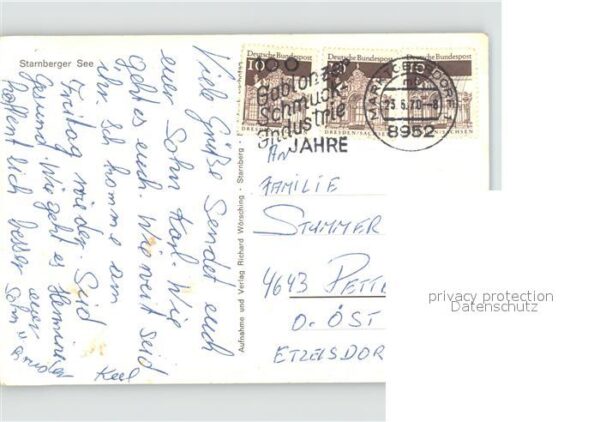 Starnberger See
Viele Grüße Sendet euch
euer Sohn Karl. Wie
geht es euch. Wie weit seid
ihr. Ich komme am
Freitag wieder. Seid
Gesund. Wie geht es Hermine
hoffentlich besser euer
Sohn u Bruder
Karl
Aufnahme und Verlag Richard Wörsching · Starnberg
Deutsche Bundespost Deutsche Bundespost Deutsche Bundespost
100
Gablonzer
Schmuck-
Industrie
JAHRE
DRESDEN/SACHSEN DRESDEN/SACHSEN
MARKTOBERDORF
23.6.70-8
8952
AN
FAMILIE
STUMMER
4643 PETTE
O. ÖST
ETZELSDOR
privacy protection
Datenschutz